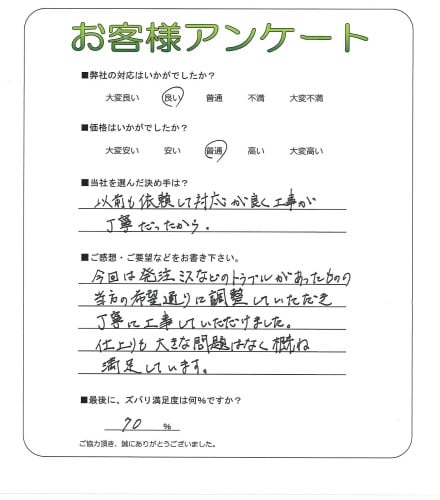 お客様アンケート
■弊社の対応はいかがでしたか?
大変良い 良い 普通 不満 大変不満
■価格はいかがでしたか?
大変安い 安い 普通 高い 大変高い
■当社を選んだ決め手は?
以前も依頼して対応が良く工事が
丁寧だったから。
■ご感想・ご要望などをお書き下さい。
今回は発注ミスなどのトラブルがあったものの
当方の希望通りに調整していただき
丁寧に工事していただけました。
仕上りも大きな問題はなく概ね
満足しています。
■最後に、ズバリ満足度は何%ですか?
90 %
ご協力頂き、誠にありがとうございました。